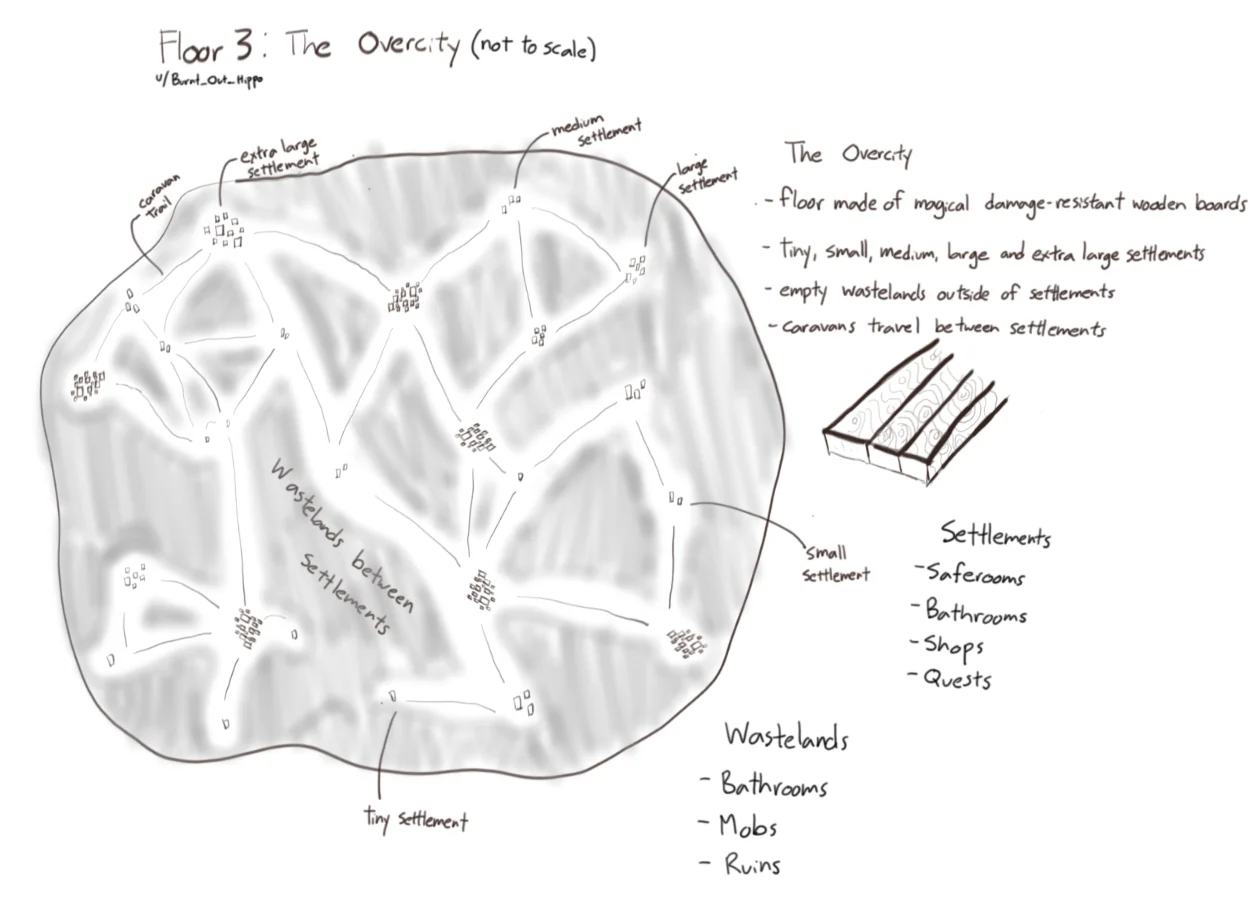 Floor 3: The Overcity (not to scale)
u/Burnt_Out_Hippo
extra large
settlement
medium
settlement
large
settlement
caravan
trail
The Overcity
- floor made of magical damage-resistant wooden boards
- tiny, small, medium, large and extra large settlements
- empty wastelands outside of settlements
- caravans travel between settlements
Wastelands between
Settlements
small
settlement
Settlements
- Saferooms
- Bathrooms
- Shops
- Quests
tiny settlement
Wastelands
- Bathrooms
- Mobs
- Ruins